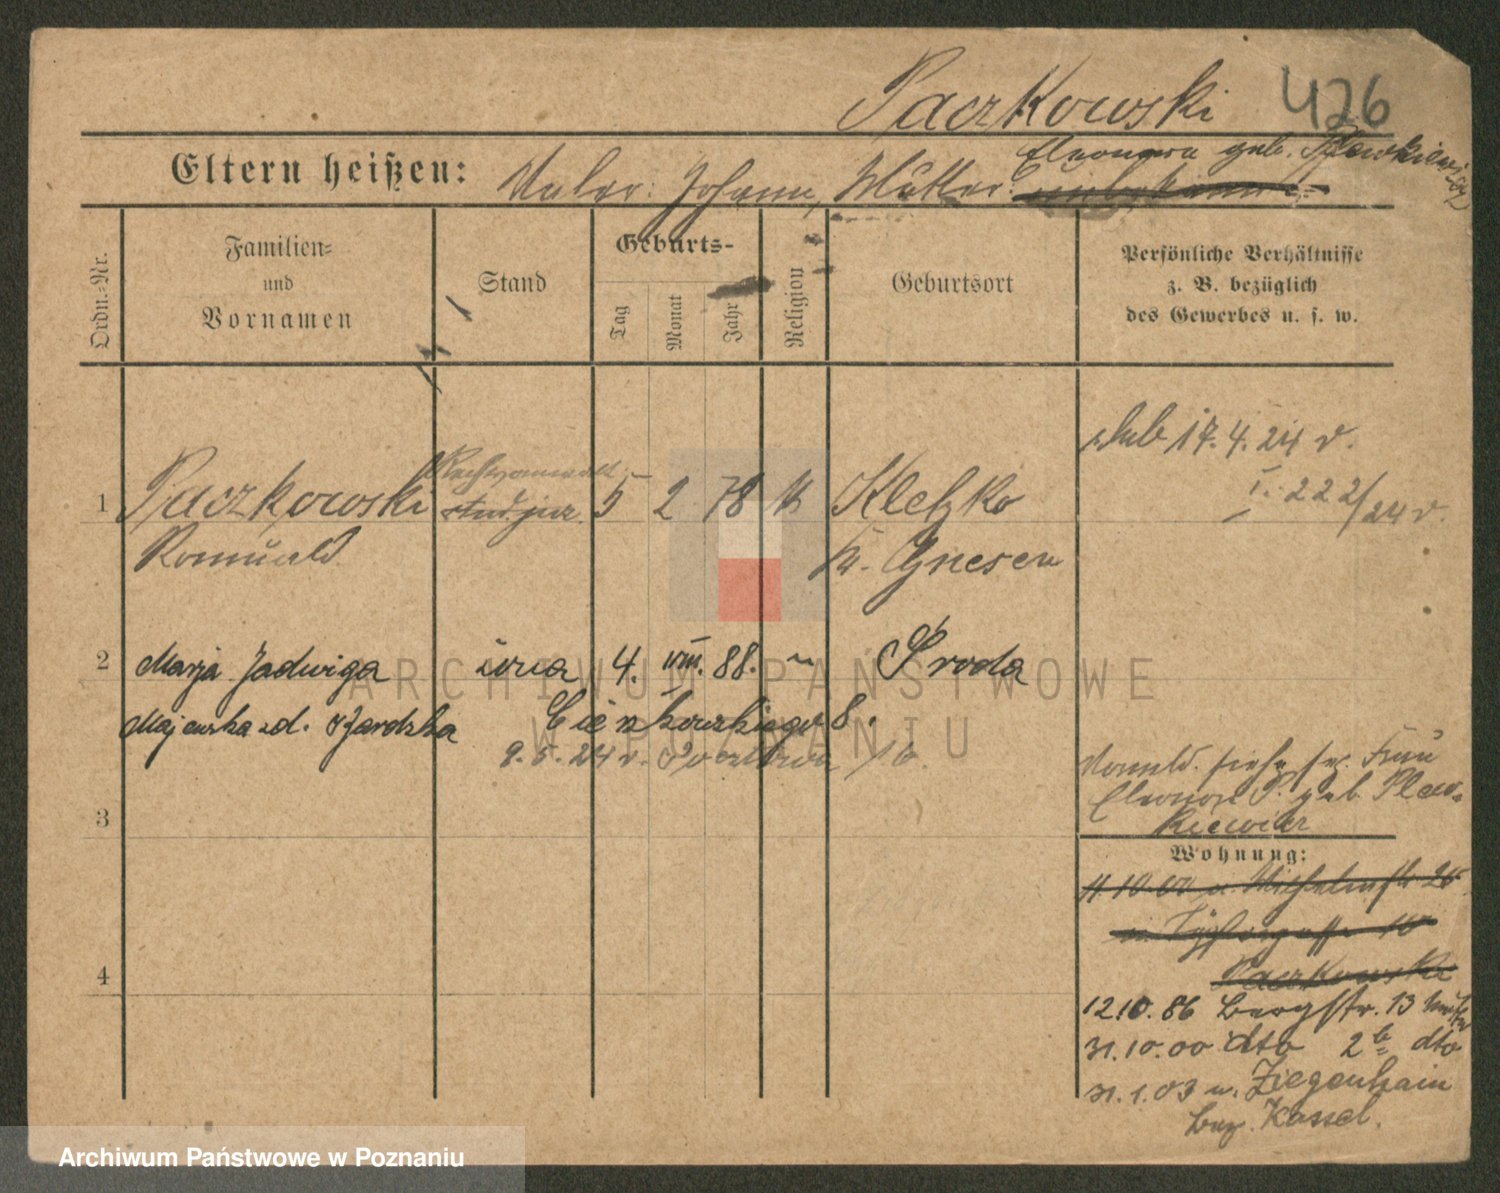 Paczkowski 426
Eleonora geb. Plewkiewicz
Eltern heißen: Vater: Johann, Mutter: unbekannt
Ordn.-Nr.
Familien-
und
Vornamen
Stand
Geburts-
Tag
Monat
Jahr
Religion
Geburtsort
Persönliche Verhältnisse
z. B. bezüglich
des Gewerbes u. s. w.
ślub 17.4.24 r.
I. 222/24 r.
Rechtsanwalt
1 Paczkowski stud. jur. 5 2 78 k Kletzko
Romuald Kr. Gnesen
2 Marja Jadwiga żona 4. VIII. 88. " Środa
Majewska zd. Cieszkowskiego 8.
9.5.24 r. 16.
Romuald siehe Frau
Eleonore P. geb. Plew-
kiewicz
3
Wohnung:
11.10.00 u. Wilhelmstr. 26
Paczkowski
4
12.10.86 Bergstr. 13 Mutter
31.10.00 dto 2b dto
31.1.03 n. Ziegenhain
Bez. Kassel.
ARCHIWUM PAŃSTWOWE
W POZNANIU
Archiwum Państwowe w Poznaniu